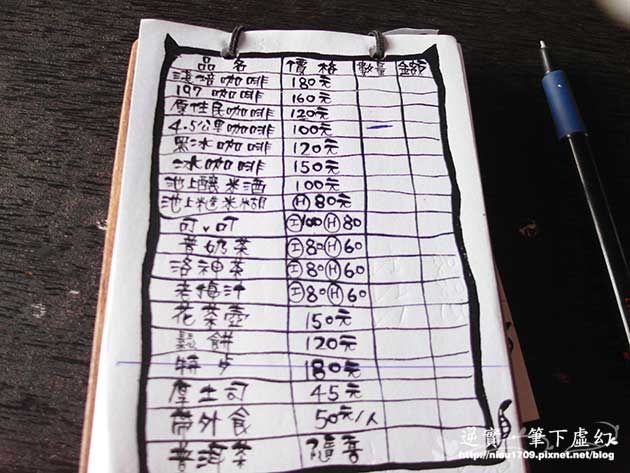 品名 價格 數量 金額
淺焙咖啡 180元
197咖啡 160元
原住民咖啡 120元
4.5公里咖啡 100元
黑冰咖啡 120元
冰咖啡 150元
池上釀米酒 100元
池上糙米糊 Ⓗ80元
可可 Ⓘ100Ⓗ80
香奶茶 Ⓘ80Ⓗ60
洛神茶 Ⓘ80Ⓗ60
老梅汁 Ⓘ80Ⓗ60
花茶壺 150元
鬆餅 120元
特步 180元
厚土司 45元
帶外食 50元/人
普洱茶 隨喜
逆實─筆下虛幻
http://nisu1709.pixnet.net/blog